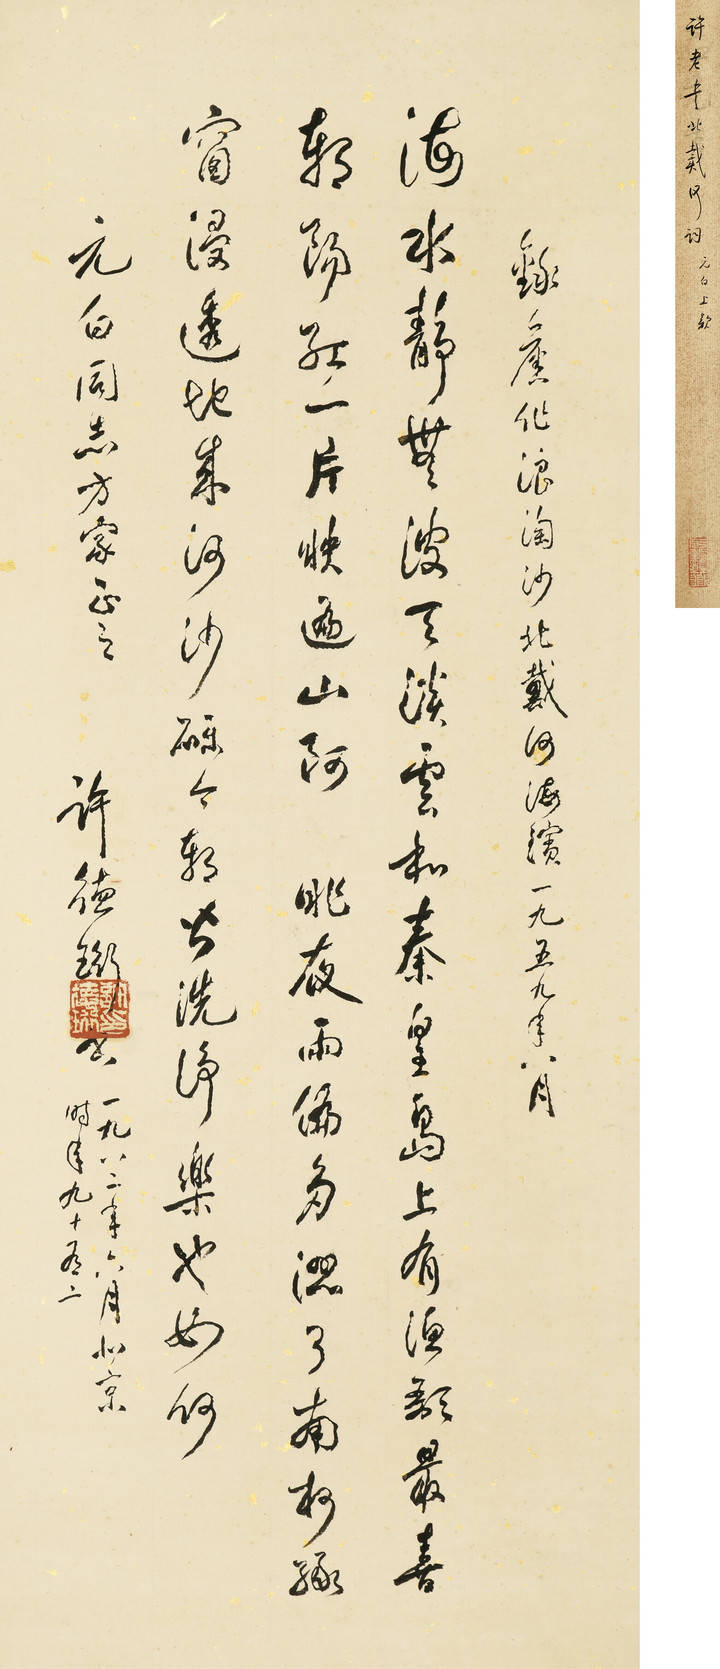 錄舊作浪淘沙北戴河海濱一九五九年八月
海水靜無波天淡雲和秦皇島上有漁歌最喜
朝陽紅一片映遍山阿 昨夜雨偏多濕了南柯綠
窗浸透地成河沙礫今朝皆洗淨樂也如何
元白同志方家正之
許德珩書
一九八二年六月北京
時年九十有二
許老書北戴河詞 元白上款